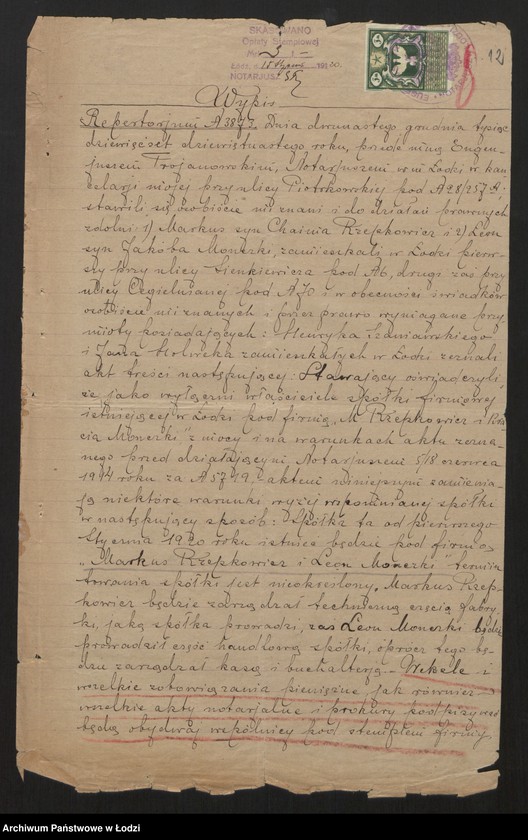 SKASOWANO
Opłaty Stemplowej
Łódź, 15 Stycznia 1920.
NOTARJUSZ
12
Wypis
Repertorjum № 3873. Dnia dwunastego grudnia tysiąc
dziewięćset dziewiętnastego roku, przede mną Euge-
njuszem Trojanowskim, Notarjuszem w m. Łodzi w kan-
celarji mojej przy ulicy Piotrkowskiej pod № 28/257 A;
stawili się osobiście mi znani i do działań prawnych
zdolni: 1) Markus syn Chaima Rzepkowicz i 2) Leon
syn Jakóba Moneszki, zamieszkali w Łodzi pierw-
szy przy ulicy Sienkiewicza pod № 6, drugi zaś przy
ulicy Cegielnianej pod № 70 i w obecności świadków
osobiście mi znanych i przez prawo wymagane przy-
mioty posiadających: Henryka Szaniawskiego
i Jana Holweka zamieszkałych w Łodzi zeznali
akt treści następującej: Stawający oświadczyli
że jako wyłączni właściciele spółki firmowej
istniejącej w Łodzi pod firmą „M Rzepkowicz i
Moneszki" z mocy i na warunkach aktu zezna-
nego przed działającym Notarjuszem 5/18 czerwca
1914 roku za № 5719, aktem niniejszym zamienia-
ją niektóre warunki wyżej wspomnianej spółki
w następujący sposób: Spółka ta od pierwszego
Stycznia 1920 roku istnieć będzie pod firmą
„Markus Rzepkowicz i Leon Moneszki termin
trwania spółki jest nieokreślony. Markus Rzep-
kowicz będzie zarządzał techniczną częścią fabry-
ki, jaką spółka prowadzi, zaś Leon Moneszki będzie
prowadził część handlową spółki, oprócz tego bę-
dzie zarządzał kasą i buchalterją. Weksle i
wszelkie zobowiązania pieniężne, jak również
wszelkie akty notarjalne i prokury podpisywać
będą obydwaj wspólnicy pod stemplem firmy
Archiwum Państwowe w Łodzi